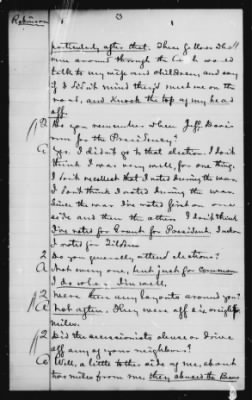 Robinson 3
particularly after that. Those fellows that
run around through the Co. h would
talk to my wife and children, and say
if I didn't mind they'd meet me on the
road, and knock the top of my head
off.
Q Do you remember when Jeff. Davis
for the Presidency?
A Yes. I didn't go to that election. I don't
think I was very well, for one thing.
I don't recollect that I voted during the war.
I don't think I voted during the war.
Since the war I've voted first on one
side and then the other. I don't think
I've voted for Grant for President. I
voted for Tilden
Q Do you generally attend elections?
A Not every one, but just for common
I do when I'm well.
Q Were there any layouts around you?
A Not often. They were off eight
miles.
Q Did the secessionists abuse or drive
off any of your neighbors?
A Well, a little to the side of me, about
two miles from me, they abused the